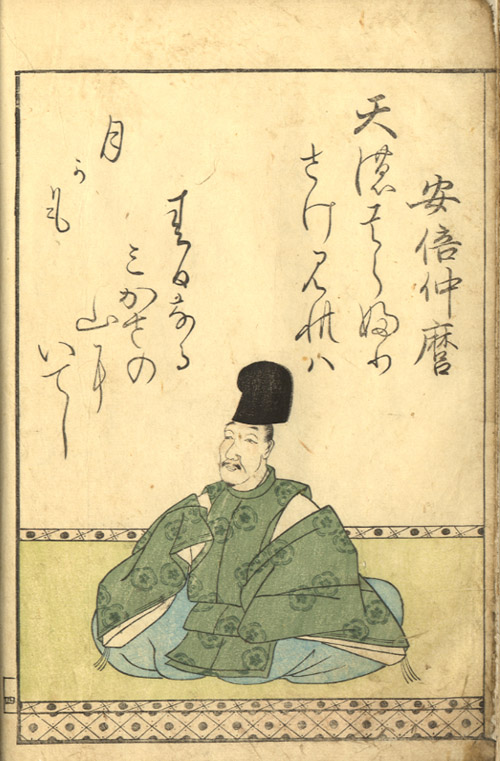 安倍仲麿
天のはらふり
さけ見れハ
春日なる
ミかさの
山に
いてし
月かも